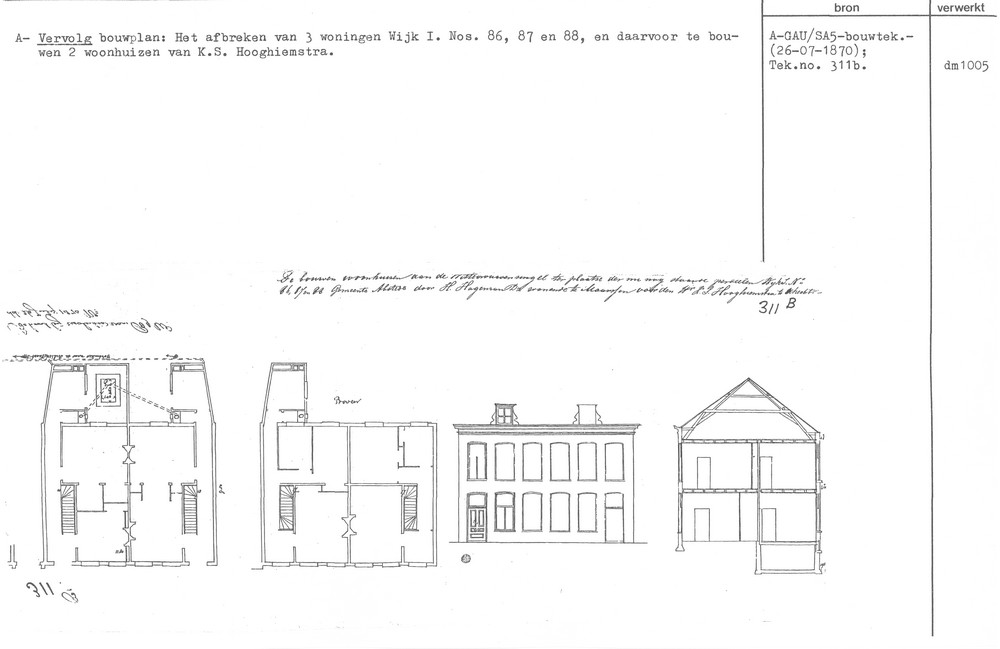 bron
verwerkt
A- Vervolg bouwplan: Het afbreken van 3 woningen Wijk I. Nos. 86, 87 en 88, en daarvoor te bou-
wen 2 woonhuizen van K.S. Hooghiemstra.
A-GAU/SA5-bouwtek.-
(26-07-1870);
Tek.no. 311b.
dm1005
Te bouwen woonhuizen aan de Wittevrouwensingel ter plaatse der nu nog staande perceelen Wijk I. No
86, 87 en 88 Gemeente Abstede door H. Hageman wonende te Maarssen voor den Hr Hooghiemstra te Utrecht
311 B
Boven
311 B